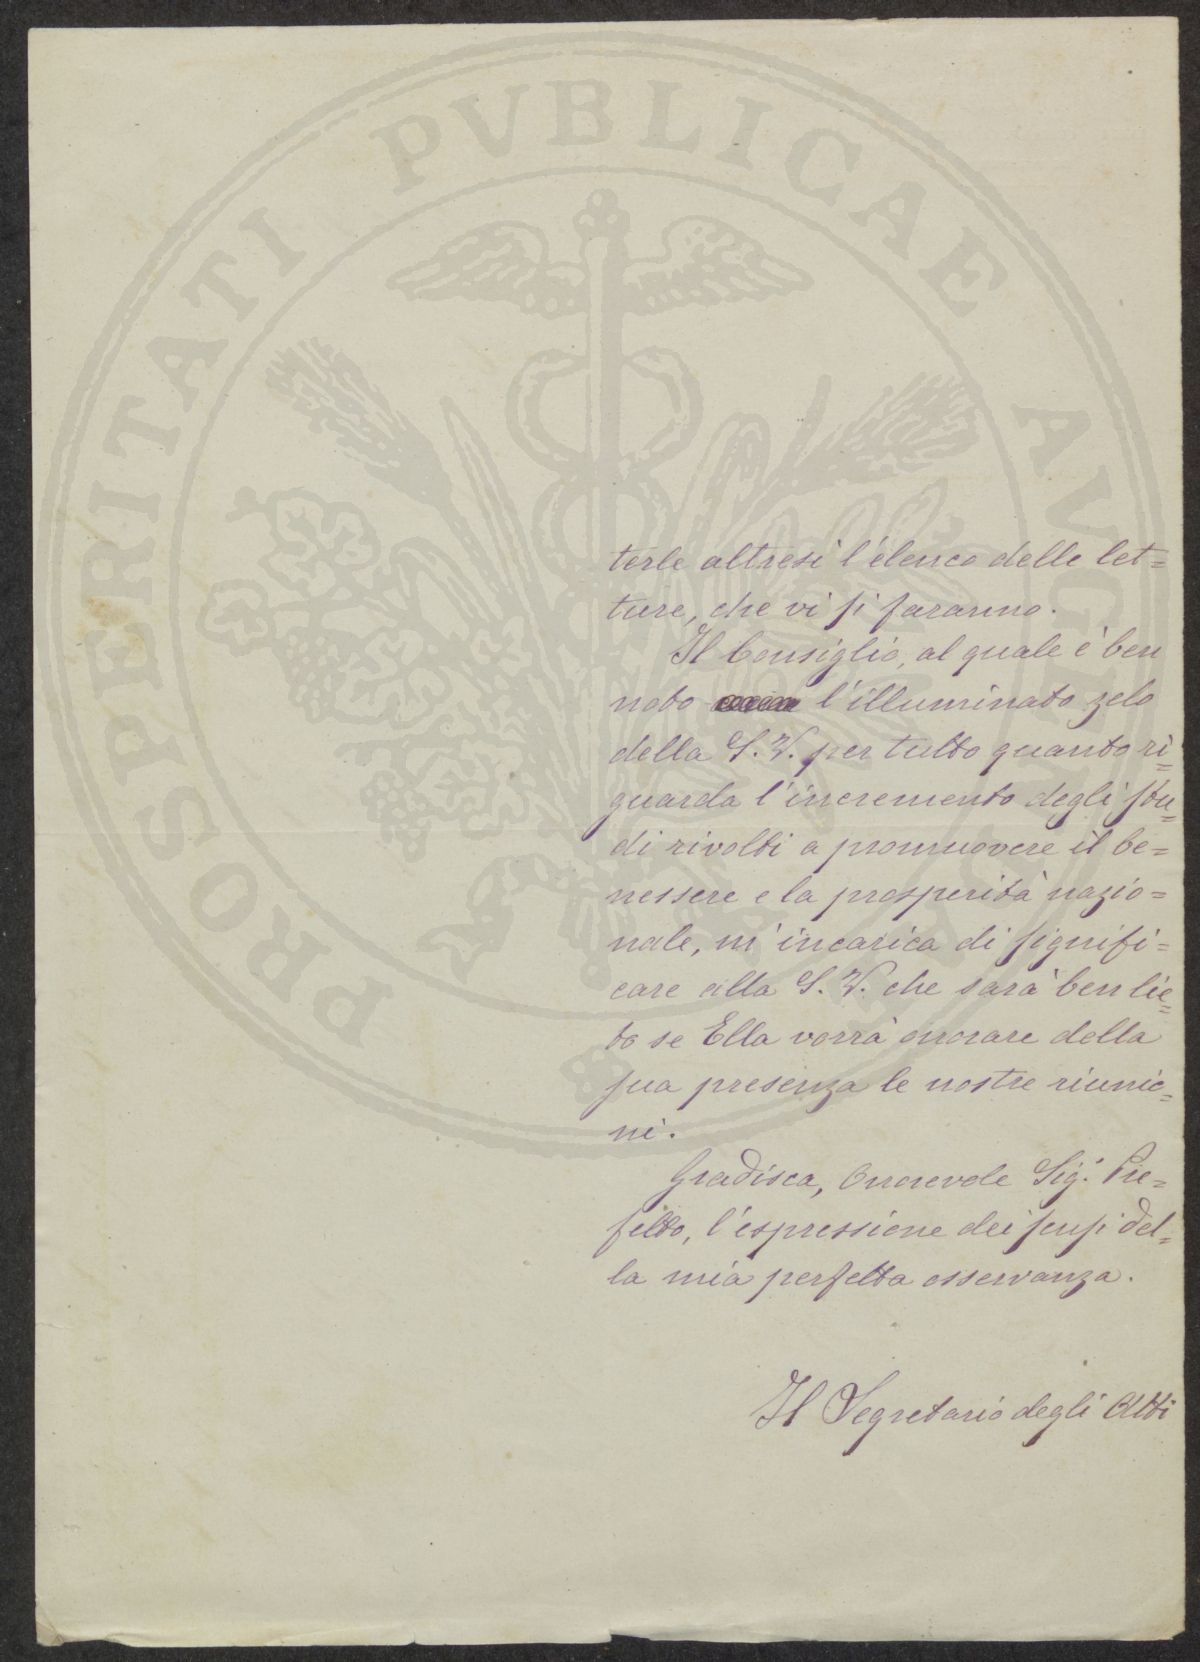 PROSPERITATI PVBLICAE AVGENDAE
terle altresì l'elenco delle let=
ture, che vi si faranno.
Il Consiglio, al quale è ben
noto l'illuminato zelo
della S. V. per tutto quanto ri=
guarda l'incremento degli stu=
di rivolti a promuovere il be=
nessere e la prosperità nazio=
nale, m'incarica di signifi=
care alla S. V. che sarà ben lie=
to se Ella vorrà onorare della
sua presenza le nostre riunio=
ni.
Gradisca, Onorevole Sig.r Pre=
fetto, l'espressione dei sensi del=
la mia perfetta osservanza.
Il Segretario degli Atti